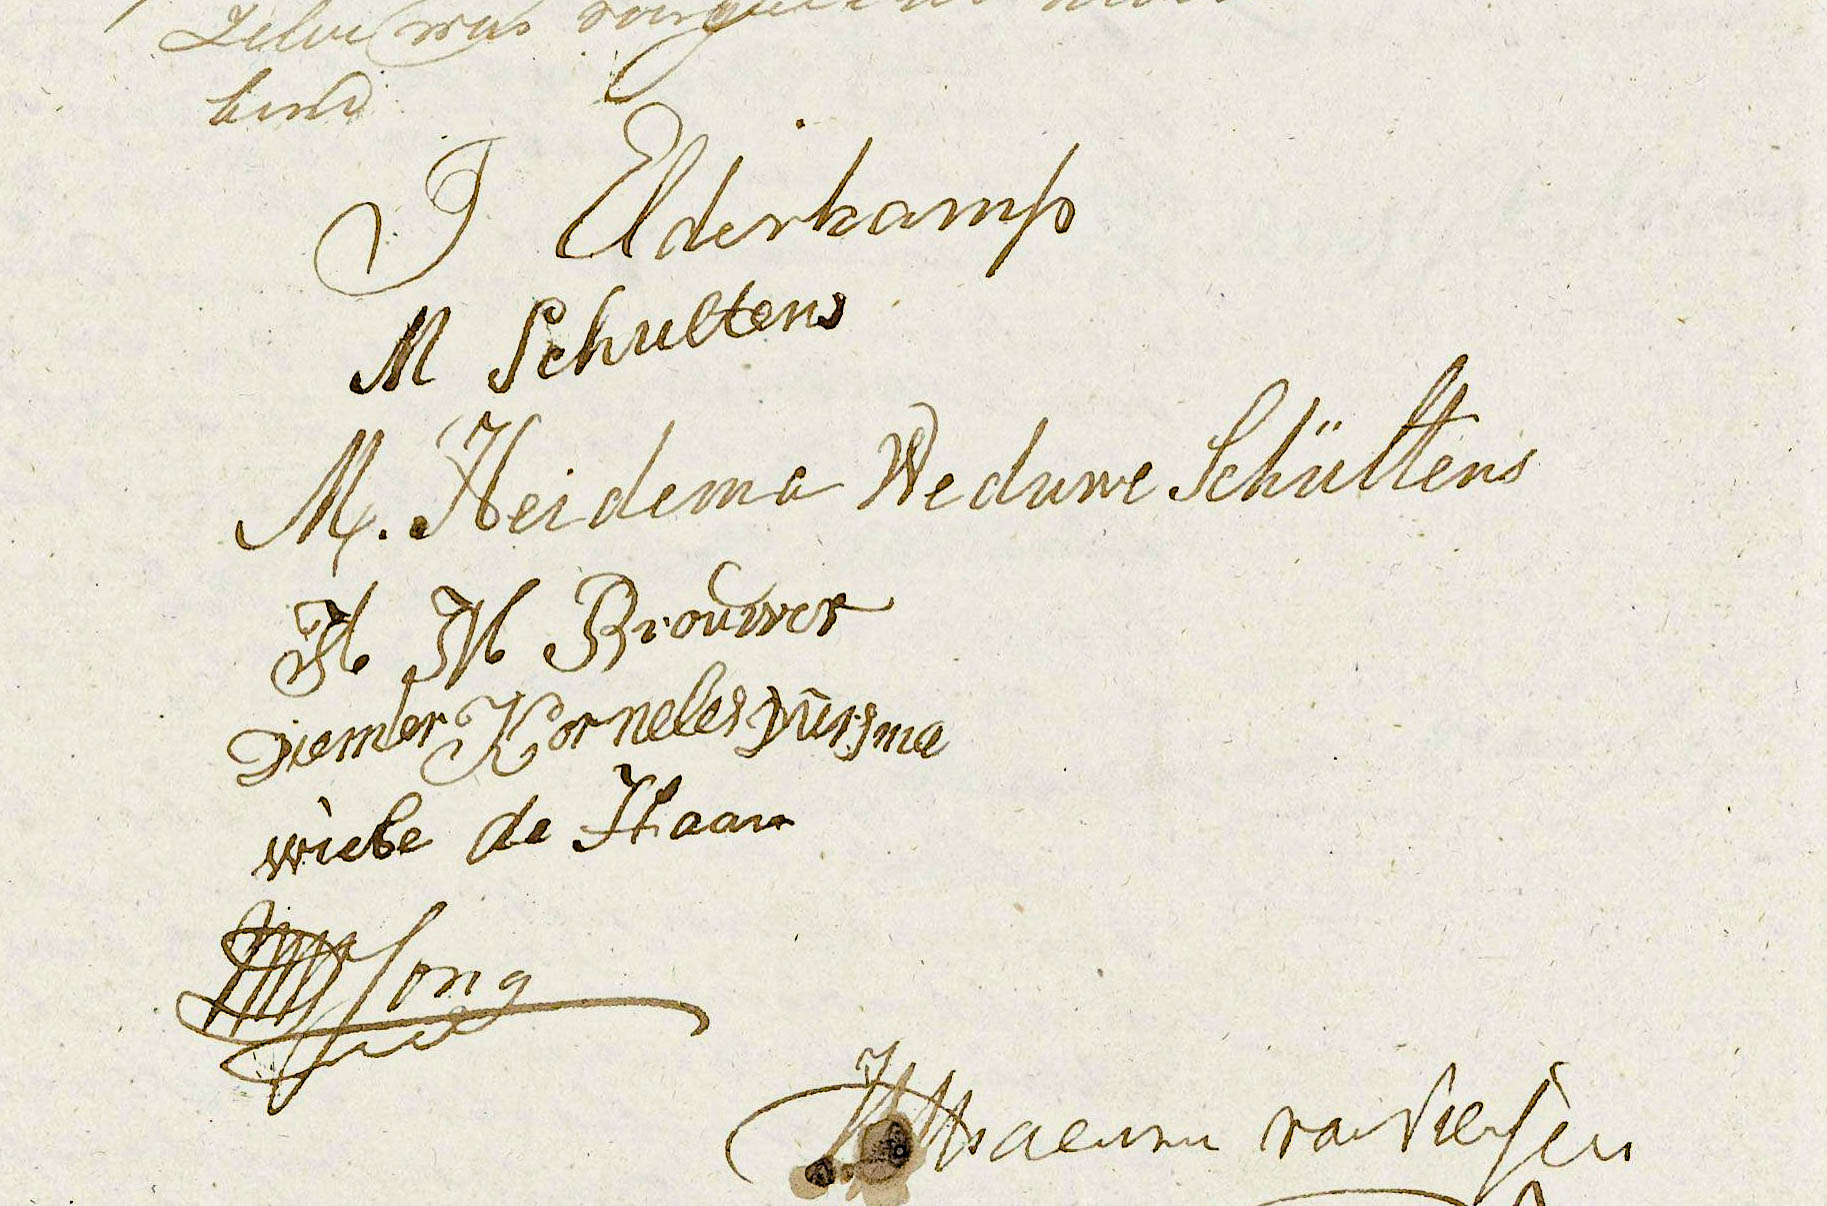 zelve was
kend
J Elderkamp
M Schultens
M. Heidema Weduwe Schültens
H H Brouwer
Diemer Korneles Dursma
wiebe de Haan
Jong